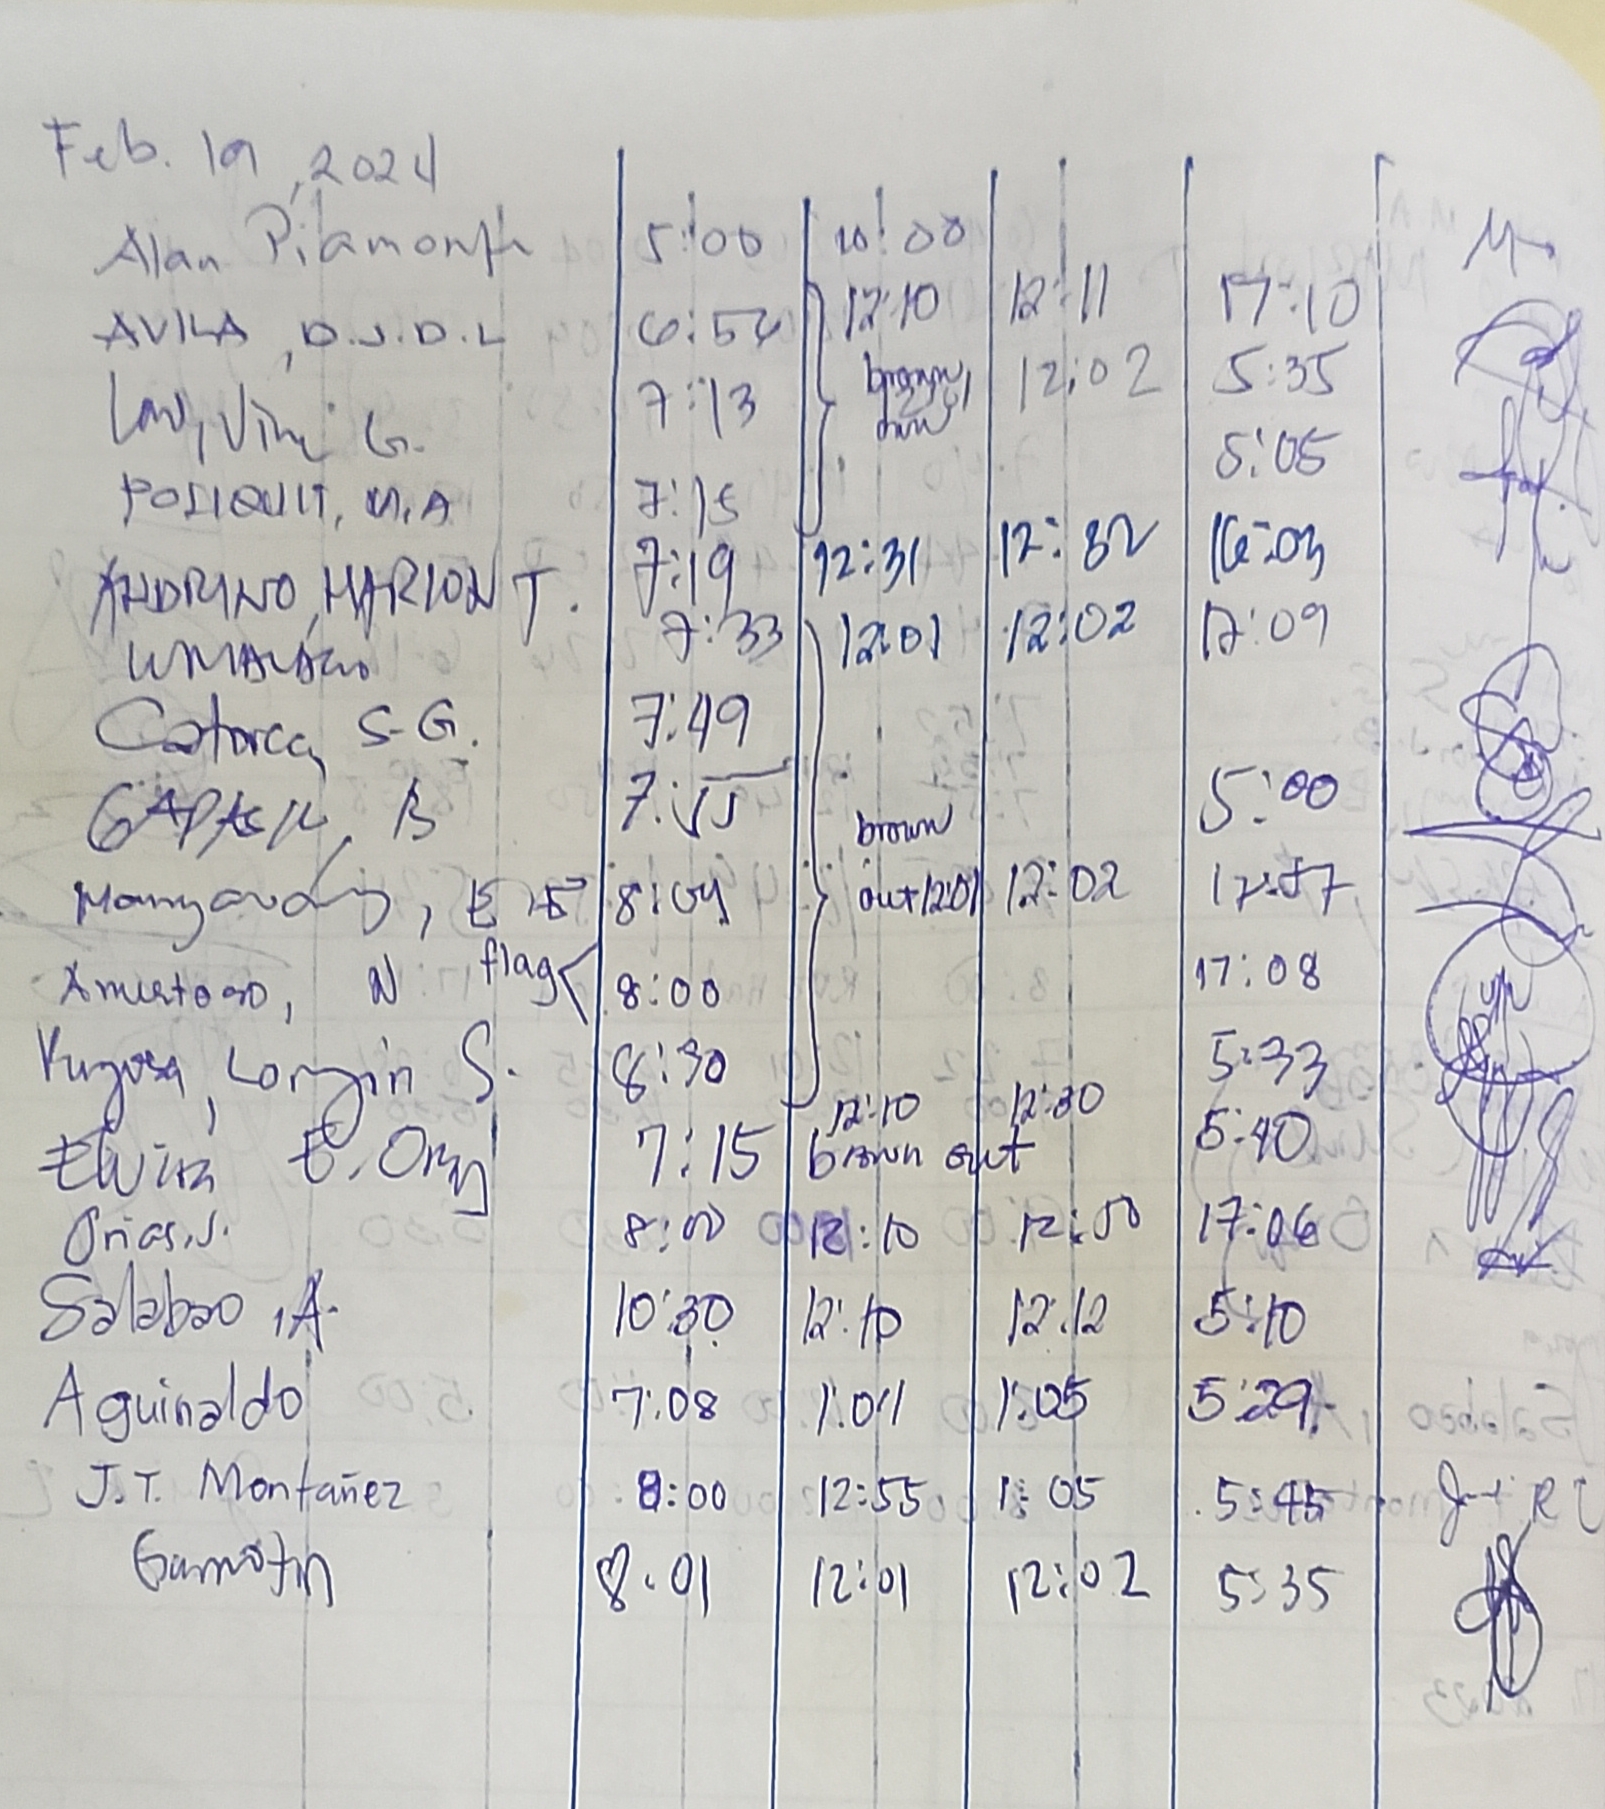 Feb. 19, 2024
Alan Piamonte 5:00 10:00
AVILA, D.J.D.L 6:54 12:10 12:11 17:10
7:13 brown 12:02 5:35
G. 5:05
POLIQUIT, M.A 7:15
ANDRINO, MARION T. 7:19 12:31 12:32 16:03
7:33 12:01 12:02 17:09
Catorce, S.G. 7:49
GAPASIN, B 7:55 5:00
brown
8:04 out 12:01 12:02 17:07
N flag 8:00 17:08
S. 8:30 5:33
12:10 12:30
Elvira E. 7:15 brown out 5:40
Orias, J. 8:00 12:10 12:50 17:06
Salabao, A. 10:30 12:10 12:12 5:10
Aguinaldo 7:08 1:01 1:05 5:29
J.T. Montañez 8:00 12:55 1:05 5:45
8:01 12:01 12:02 5:35